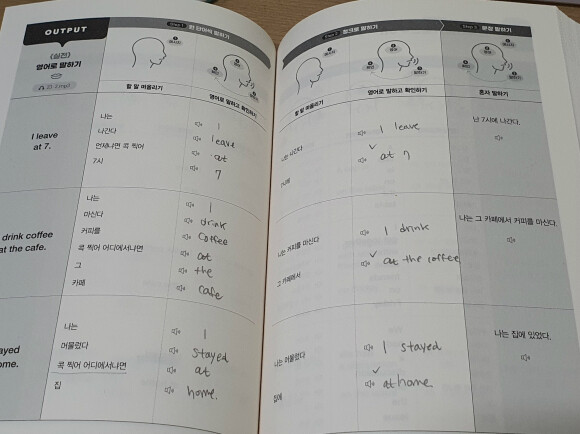 OUTPUT
Step 1 한 단어씩 말하기
〈실전〉
영어로 말하기
할 말 떠올리기
영어로 말하고 확인하기
I leave
at 7.
나는
I
나간다
leave
언제냐면 콕 찍어
at
7시
7
drink coffee
at the cafe.
나는
I
마신다
drink
커피를
coffee
콕 찍어 어디에서냐면
at
그
the
카페
cafe
ayed
ome.
나는
I
머물렀다
stayed
콕 찍어 어디에서냐면
at
집
home.
Step 2 청크로 말하기
Step 3 문장 말하기
할 말 떠올리기
영어로 말하고 확인하기
혼자 말하기
나는 나간다
I leave
7시에
at 7
난 7시에 나간다.
나는 커피를 마신다
I drink
그 카페에서
at the coffee
나는 그 카페에서 커피를 마신다.
나는 머물렀다
I stayed
집에
at home.
나는 집에 있었다.